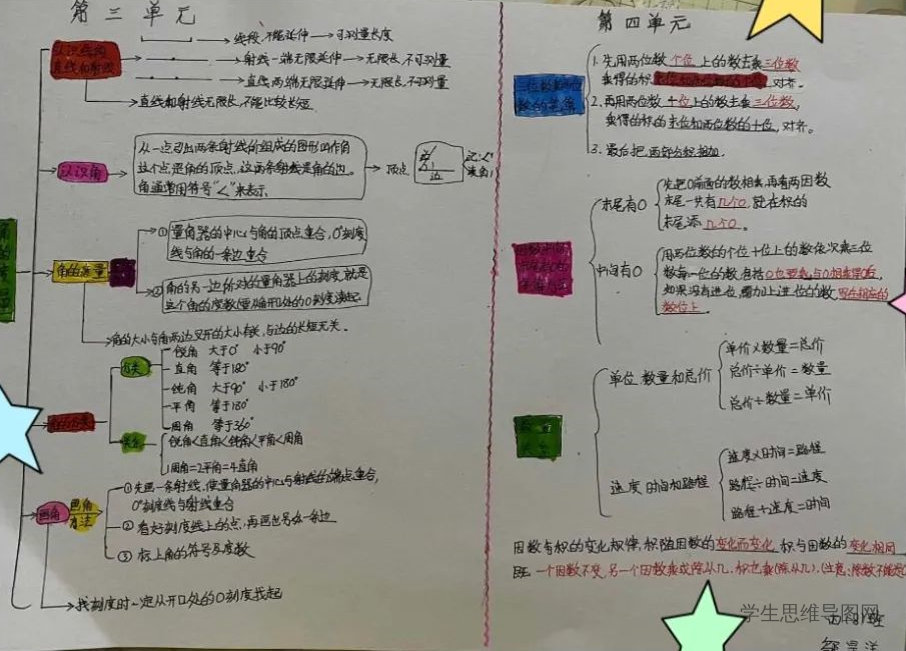 第三单元
线段,不能延伸→可测量长度
射线一端无限延伸→无限长,不可测量
直线两端无限延伸→无限长,不可测量
直线和射线无限长,不能比较长短
认识角
从一点引出两条射线所组成的图形叫作角
这个点是角的顶点,这两条射线是角的边。
角通常用符号“∠”来表示
顶点
边
角的度量
①量角器的中心与角的顶点重合,0°刻度
线与角的一条边重合
②角的另一边所对的量角器上的刻度,就是
这个角的度数
角的大小与角两边叉开的大小有关,与边的长短无关。
分类
锐角 大于0° 小于90°
直角 等于180°
钝角 大于90° 小于180°
平角 等于180°
周角 等于360°
锐角<直角<钝角<平角<周角
1周角=2平角=4直角
画角
画角
方法
①先画一条射线,使量角器的中心与射线的端点重合,
0°刻度线与射线重合
②看好刻度线上的点,再画出另一条边
③标上角的符号及度数
找刻度时一定从开口处的0刻度找起
第四单元
1.先用两位数个位上的数去乘三位数
乘得的积 对齐.
2.再用两位数十位上的数去乘三位数,
乘得的积的末位和两位数的十位,对齐。
3.最后把两部分积相加.
末尾有0
先把0前面的数相乘,再看两因数
末尾一共有几个0,就在积的
末尾添几个0。
中间有0
用两位数的个位十位上的数依次乘三位
数每一位的数,包括0也要乘,与0相乘得0后,
如果没有进位,需加上进位的数,写在相应的
数位上.
单价 数量和总价
单价×数量=总价
总价÷单价=数量
总价÷数量=单价
速度 时间和路程
速度×时间=路程
路程÷时间=速度
路程÷速度=时间
因数与积的变化规律,积随因数的变化而变化,积与因数的变化相同
即:一个因数不变,另一个因数乘或除以几,积也乘(除以几).(注意:除数不能是0
学生思维导图网